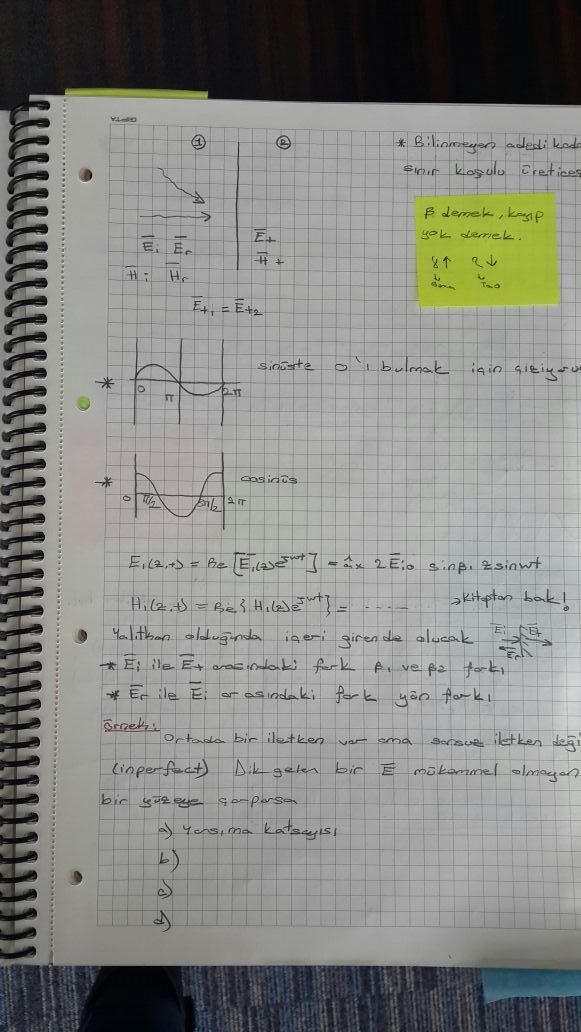 ① ②
* Bilinmeyen adedi kada
sınır koşulu üretices
β demek, kayıp
yok demek.
γ↑ ↓
Gama Tao
E̅i E̅r
H̅i H̅r
E̅t
H̅t
E̅t1 = E̅t2
* 0 π 2π
sinüste 0'ı bulmak için çiziyoru
* 0 π/2 3π/2 2π
cosinüs
E1(z,t) = Re [E̅1(z)e^jwt] = âx 2E̅i0 sinβ1 z sinwt
H1(z,t) = Re { H1(z)e^jwt} = ......
→kitaptan bak!
Yalıtkan olduğunda içeri girende olucak
E̅i E̅t
E̅r
* E̅i ile E̅t arasındaki fark β1 ve β2 farkı
* E̅r ile E̅i arasındaki fark yön farkı
örnek:
Ortada bir iletken var ama sonsuz iletken deği
(inperfect) Dik gelen bir E̅ mükemmel olmayan
bir yüzeye çarparsa
a) yansıma katsayısı
b)
c)
d)